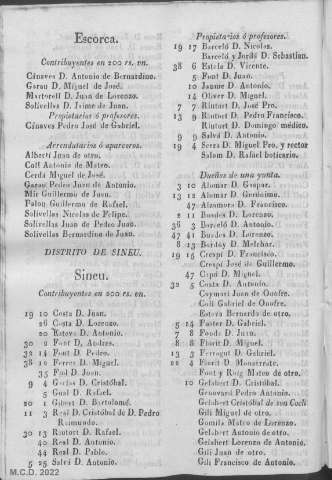 Escorca.
Contribuyentes en 200 rs. vn.
Cánaves D. Antonio de Bernardino.
Garau D. Miguel de José.
Martorell D. Juan de Lorenzo.
Solivellas D. Jaime de Juan.
Propietarios ó profesores.
Cánaves Pedro José de Gabriel.
Arrendatarios ó aparceros.
Albertí Juan de otro.
Coll Antonio de Mateo.
Cerdá Miguel de José.
Pedro Juan de Antonio.
Mir Guillermo de Juan.
Palou Guillermo de Rafael.
Solivellas Nicolas de Felipe.
Solivellas Juan de Pedro Juan.
Solivellas Bernardino de Juan.
DISTRITO DE SINEU.
Sineu.
Contribuyentes en 200 rs. vn.
19 10 Costa D. Juan.
26 Costa D. Lorenzo.
20 Esteva D. Antonio.
30 2 Font D. Andres.
32 14 Font D. Pedro.
38 10 Ferrer D. Miguel.
35 Fiol D. Juan.
9 4 D. Cristóbal.
5 Gual D. Rafael.
20 1 Gibert D. Bartolomé.
11 3 Real D. Cristóbal de D. Pedro
Raimundo.
30 13 Riutort D. Rafael.
40 Real D. Antonio.
44 Real D. Pablo.
5 25 Salvá D. Antonio.
Propietarios ó profesores.
19 17 Barceló D. Nicolas.
Barceló y Jordá D. Sebastian.
38 6 Estela D. Vicente.
5 Font D. Juan.
10 Jaume D. Antonio.
14 Oliver D. Miguel.
7 7 Riutort D. José Pro.
13 9 Riutort D. Pedro Francisco.
Riutort D. Domingo médico.
9 9 Salvá D. Antonio.
19 4 Serra D. Miguel Pro. y rector
Salom D. Rafael boticario.
Dueños de una yunta.
3 10 Alomar D. Gaspar.
13 12 Alomar D. Gerónimo.
47 Alzamora D. Francisco.
2 11 D. Lorenzo.
36 3 Barceló D. Antonio.
47 41 D. Lorenzo.
8 13 D. Melchor.
19 15 Crespí D. Francisco.
Crespí José de Guillermo.
47 D. Miguel.
32 5 Costa D. Antonio.
Caymari Juan de Onofre.
Coll Gabriel de Onofre.
Esteva Bernardo de otro.
5 14 Fuster D. Gabriel.
7 8 D. Juan.
8 8 Florit D. Miguel.
13 3 Ferragut D. Gabriel.
22 4 Florit D. Monserrate.
Font y Roig Mateo de otro.
10 Gelabert D. Cristóbal.
Genovard Pedro Antonio.
Gelabert Cristóbal de
Gili Miguel de otro.
Gomila Mateo de Lorenzo.
Gelabert Antonio de otro.
Gelabert Lorenzo de Antonio.
Gili Juan de otro.
Gili Francisco de Antonio.
M.C.D. 2022